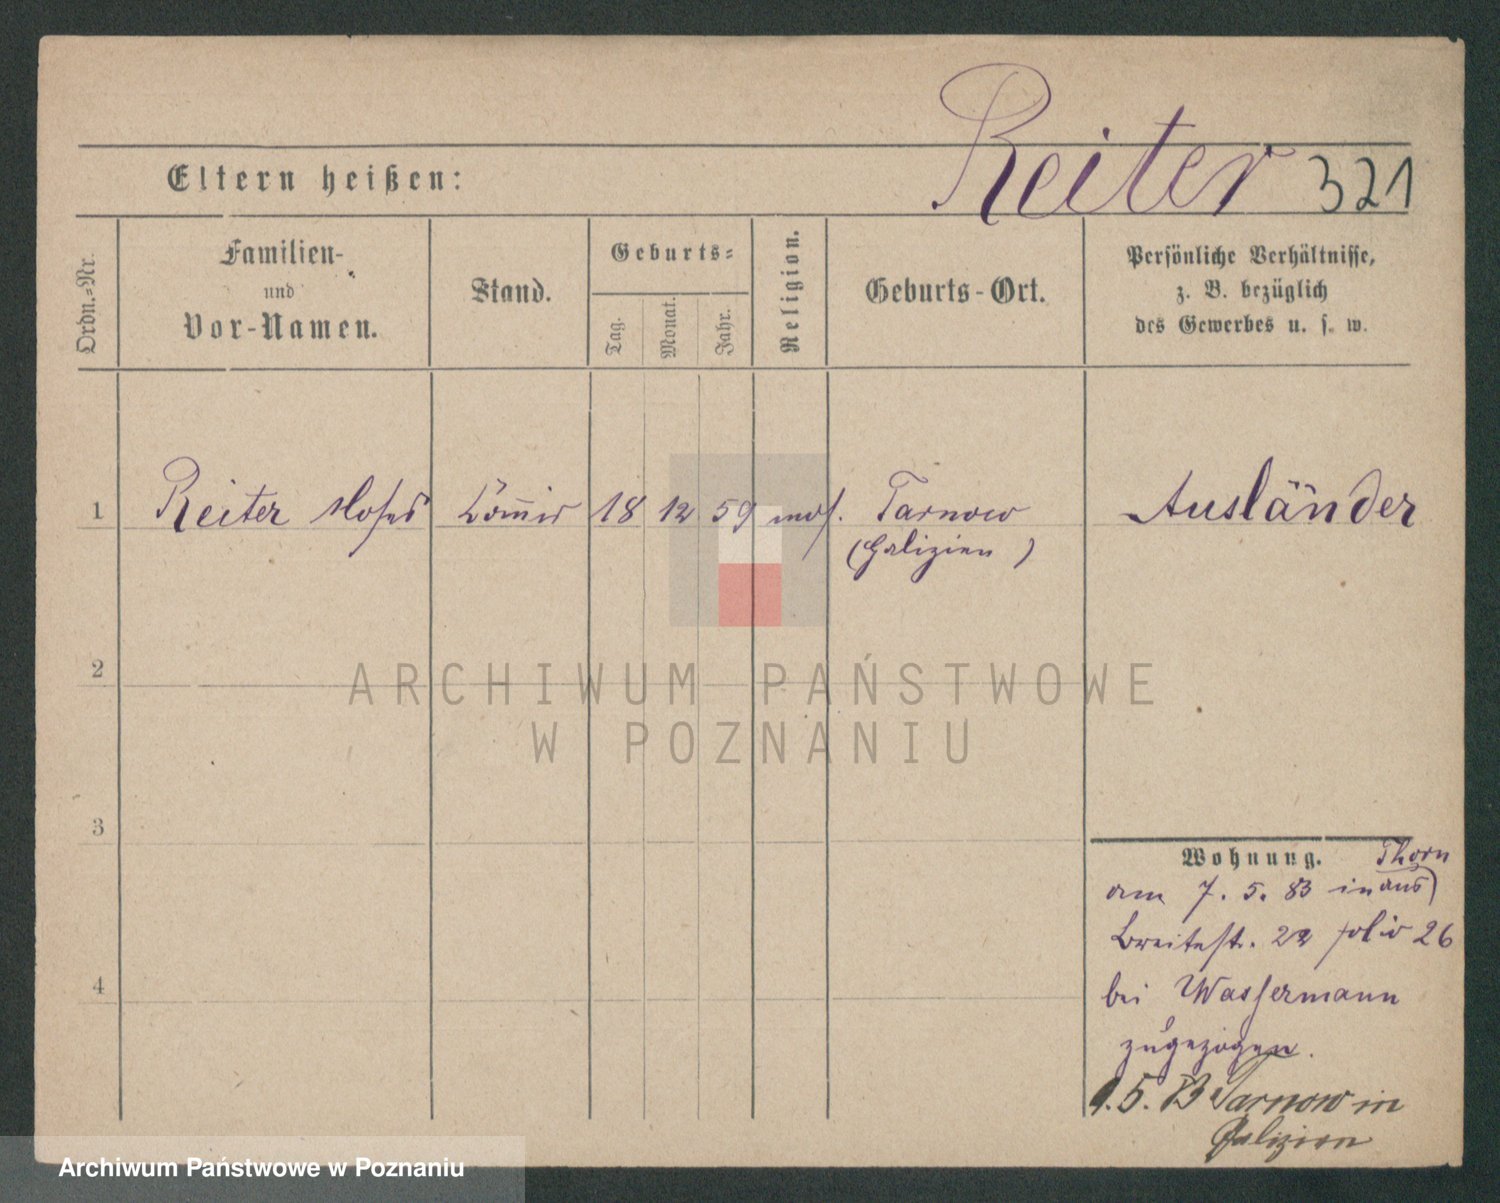 Reiter 321
Eltern heißen:
Ordn.-Nr.
Familien-
und
Vor-Namen.
Stand.
Geburts-
Tag.
Monat.
Jahr.
Religion.
Geburts-Ort.
Persönliche Verhältnisse,
z. B. bezüglich
des Gewerbes u. s. w.
1 Reiter Moses Commis 18 12 59 mos. Tarnow Ausländer
(Galizien)
2
3
4
Wohnung. Thorn
am 7. 5. 83 in aus)
Breitestr. 22 folio 26
bei Wassermann
zugezogen.
9. 5. 83 Tarnow in
Galizien
ARCHIWUM PAŃSTWOWE
W POZNANIU
Archiwum Państwowe w Poznaniu